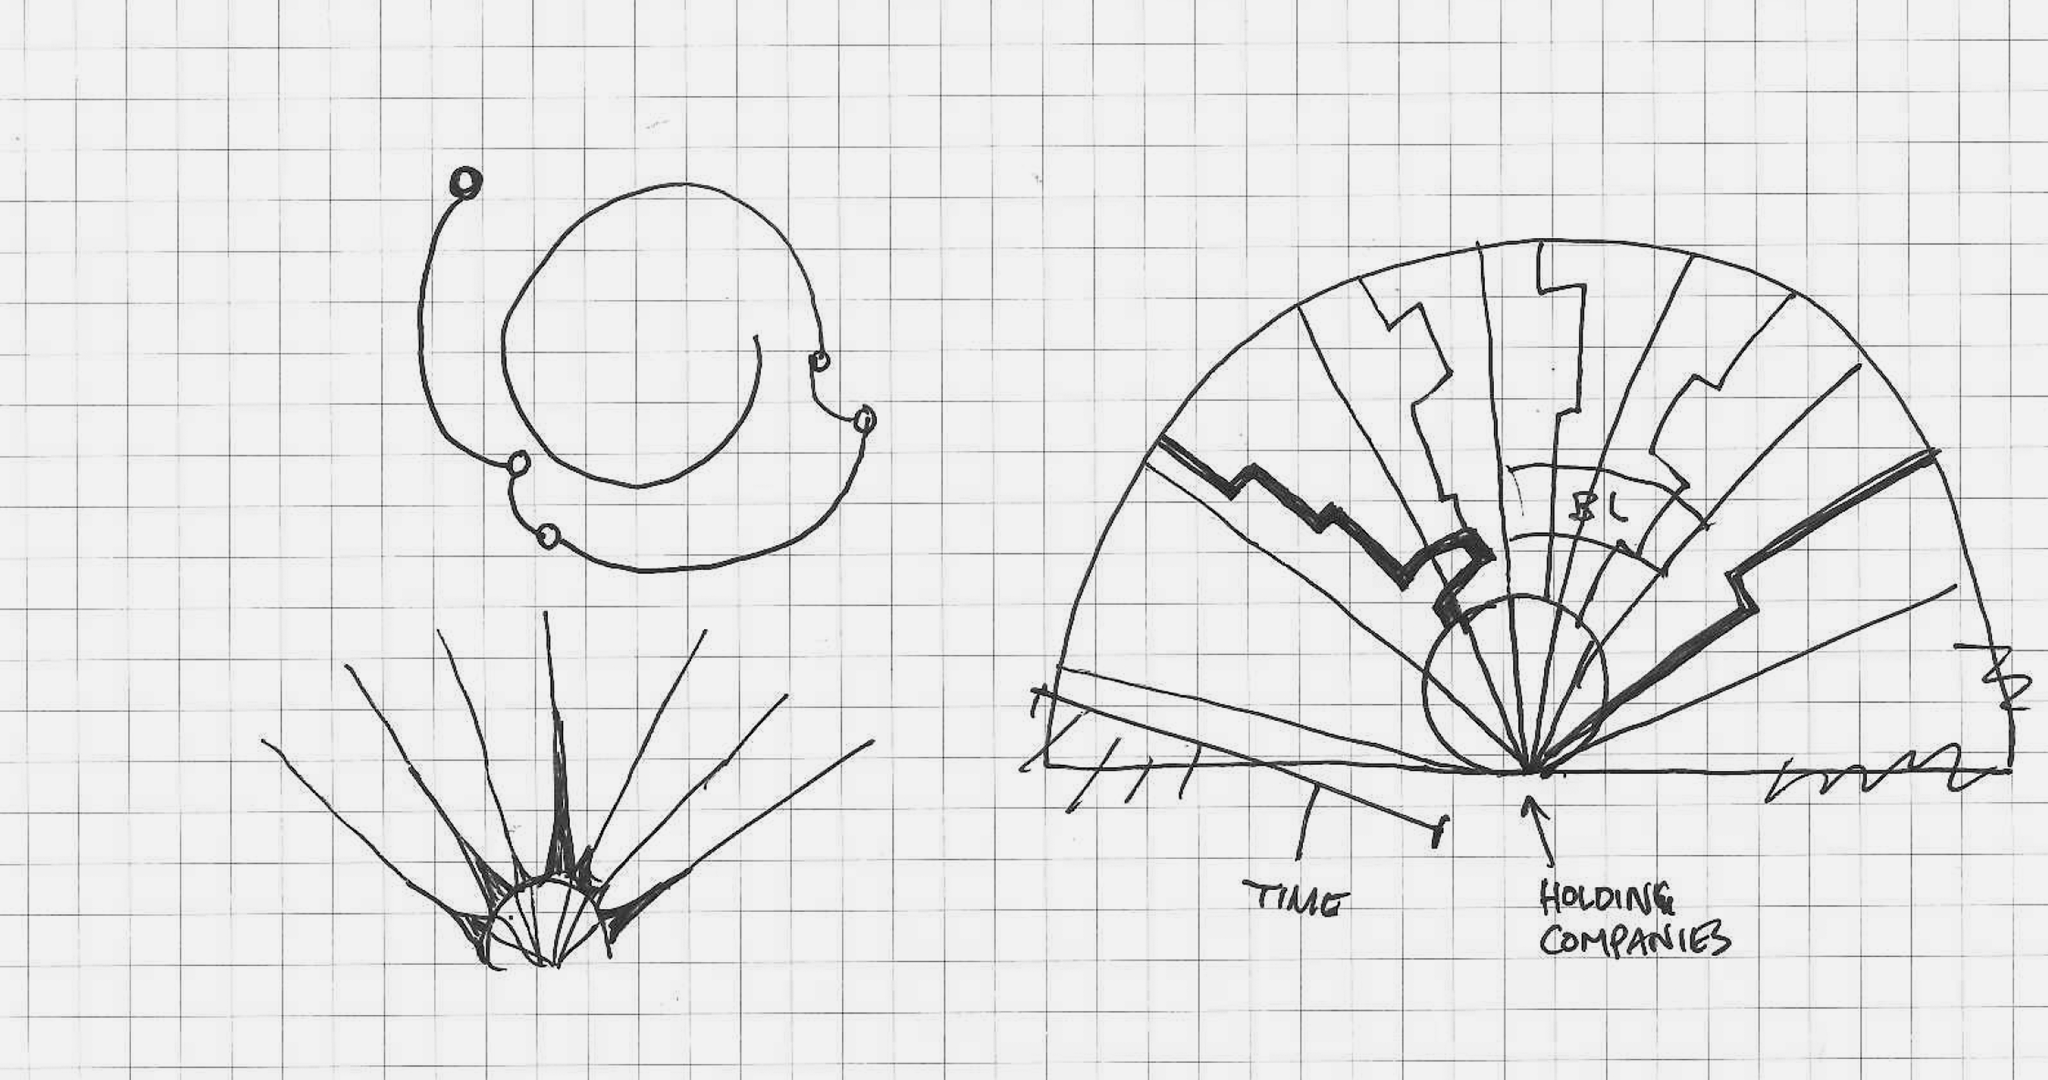 BL
TIME
HOLDING
COMPANIES